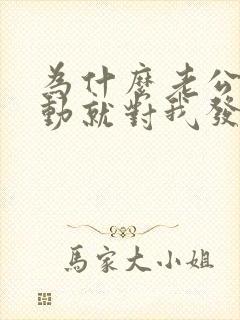 為什麼老公
動就對我發
馬家大小姐